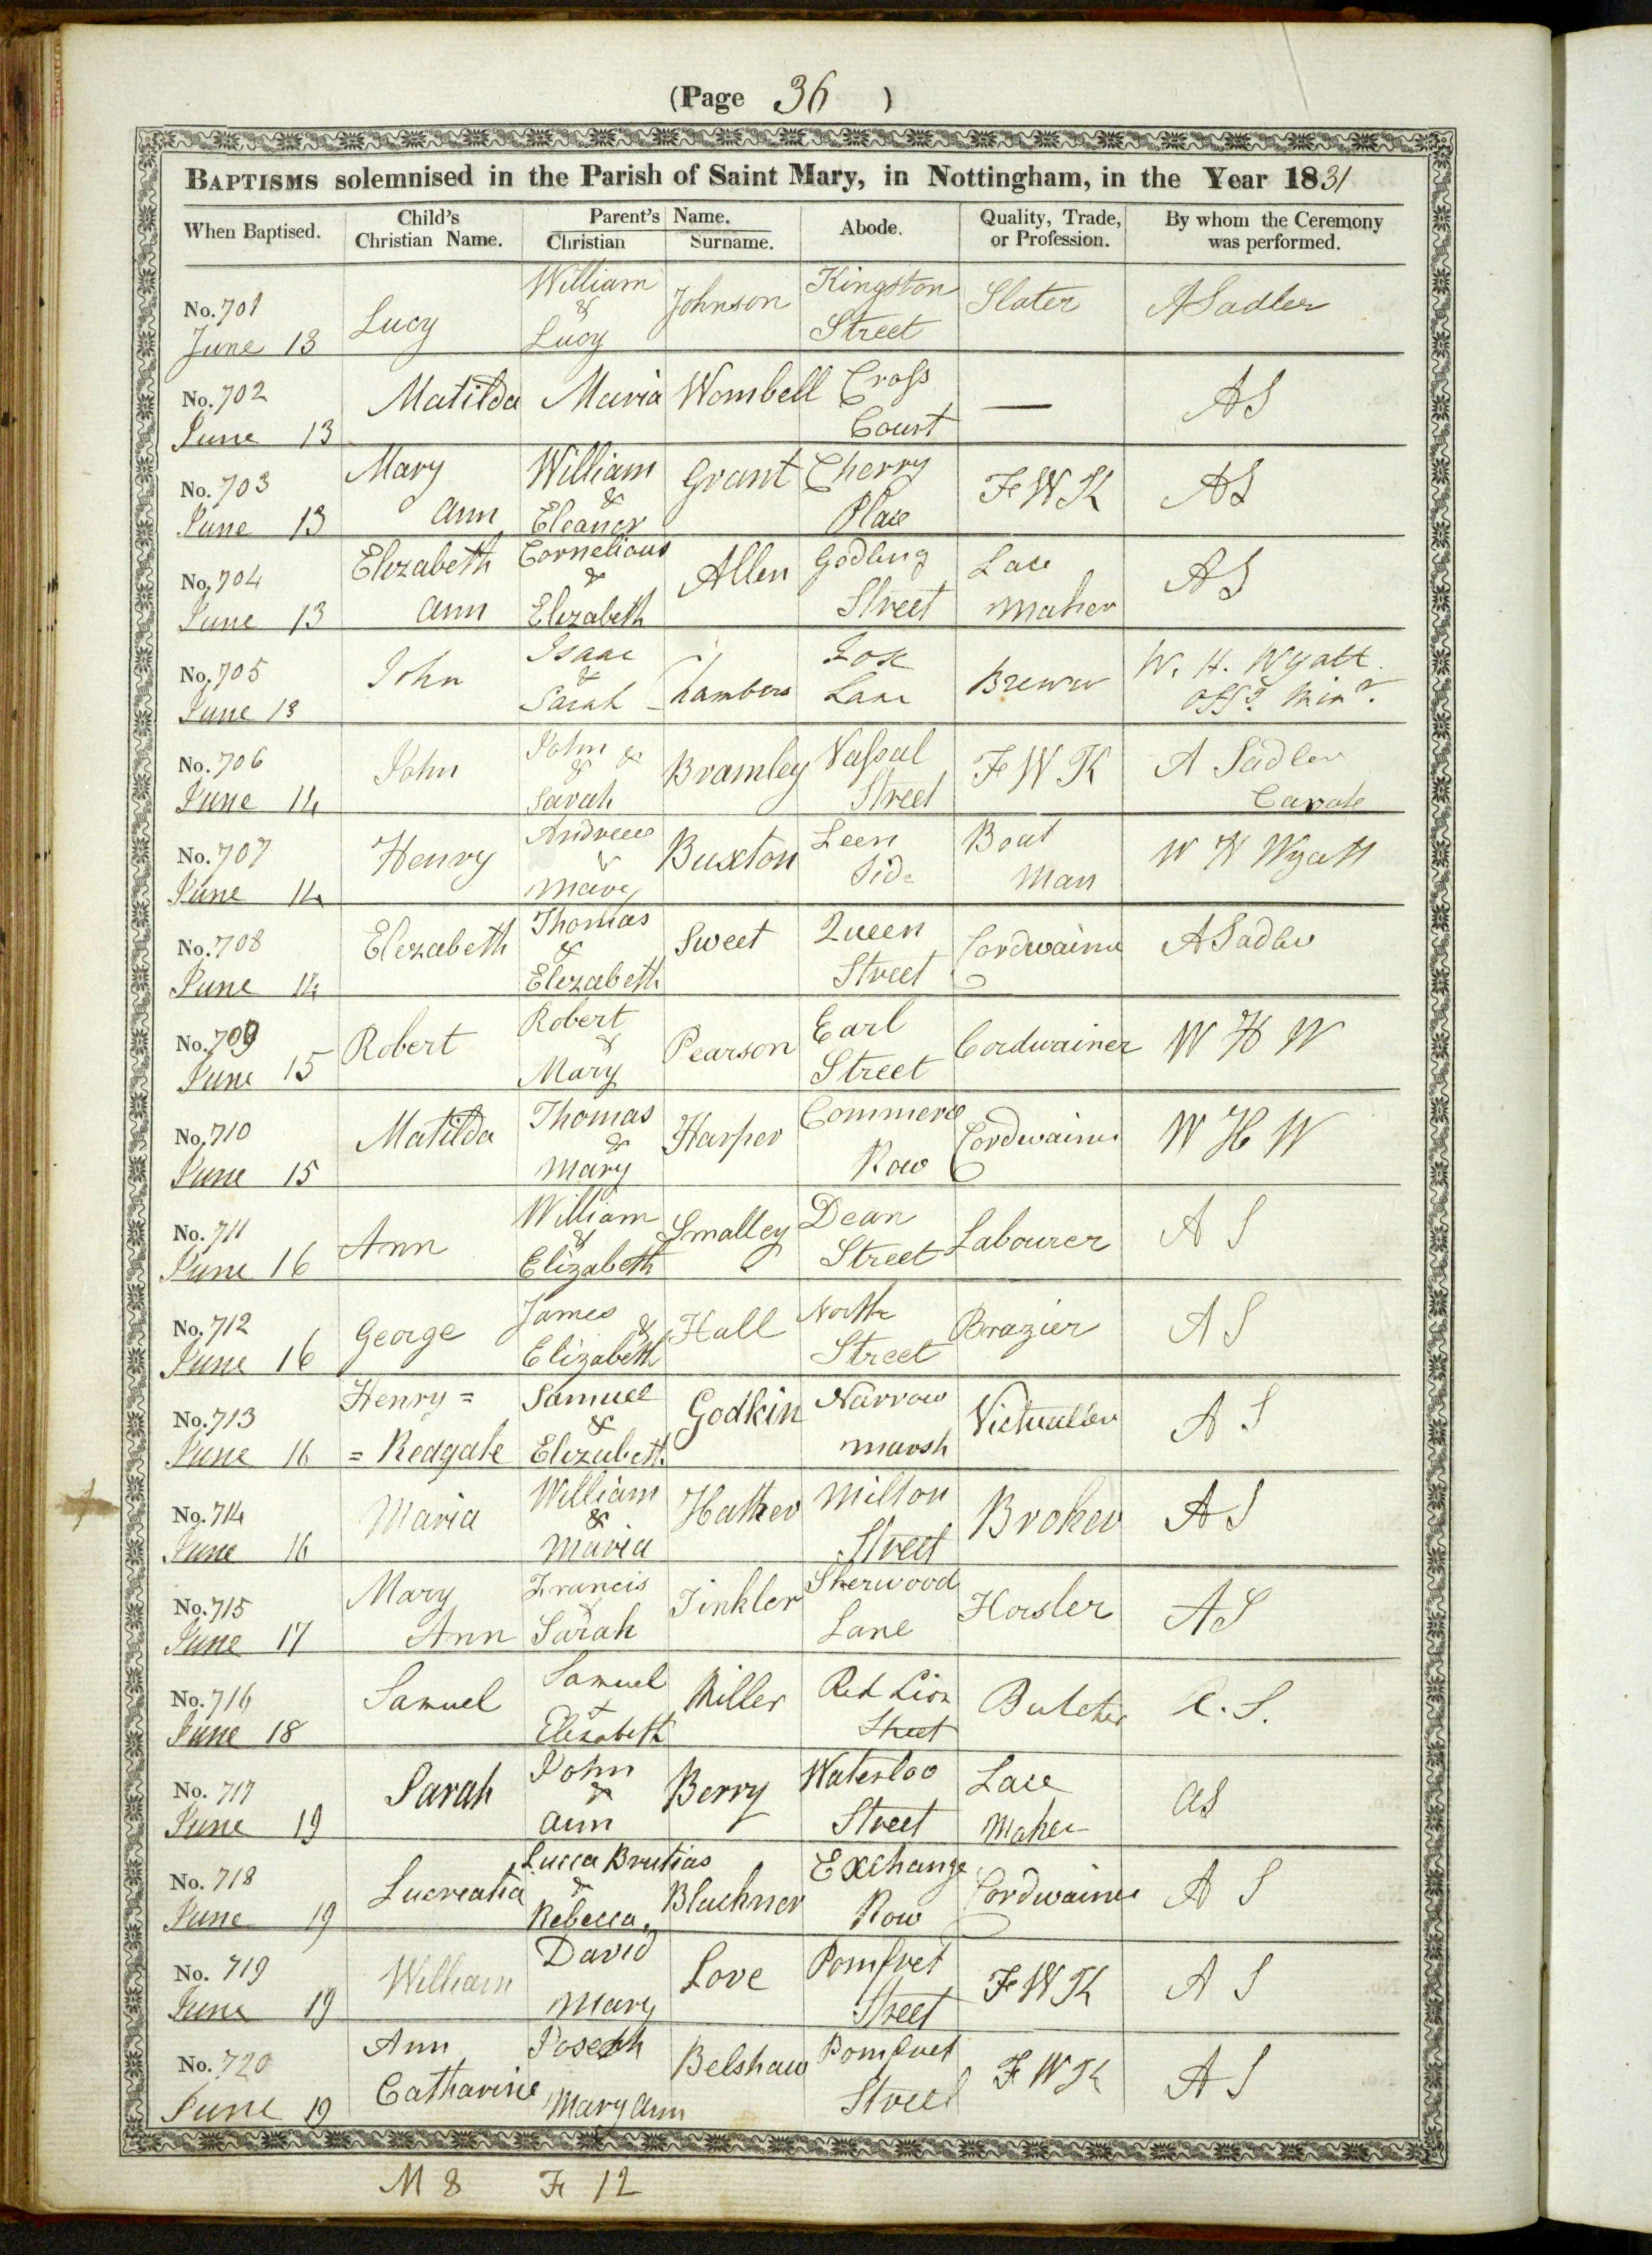 (Page 36 )
BAPTISMS solemnised in the Parish of Saint Mary, in Nottingham, in the Year 1831
When Baptised. Child's Christian Name. Parent's Name. Christian Surname. Abode. Quality, Trade, or Profession. By whom the Ceremony was performed.
No. 701 June 13 Lucy William & Lucy Johnson Kingston Street Slater A Sadler
No. 702 June 13 Matilda Maria Wombell Cross Court — AS
No. 703 June 13 Mary Ann William & Eleanor Grant Cherry Place F W K AS
No. 704 June 13 Elizabeth Ann Cornelious & Elizabeth Allen Godling Street Lace Maker AS
No. 705 June 13 John Isaac & Sarah Chambers Fox Lane Brewer W. H. Wyatt. Offg. Minr.
No. 706 June 14 John John & & Sarah Bramley Vassal Street F W K A Sadler Curate
No. 707 June 14 Henry Andrew & Mary Buxton Leen Side Boat Man W H Wyatt
No. 708 June 14 Elizabeth Thomas & Elizabeth Sweet Queen Street Cordwainer A Sadler
No. 709 June 15 Robert Robert & Mary Pearson Earl Street Cordwainer W H W
No. 710 June 15 Matilda Thomas & Mary Harper Commerce Row Cordwainer W H W
No. 711 June 16 Ann William & Elizabeth Smalley Dean Street Labourer A S
No. 712 June 16 George James & Elizabeth Hall North Street Brazier A S
No. 713 June 16 Henry = = Redgate Samuel & Elizabeth Godkin Narrow Marsh Victualler A S
No. 714 June 16 Maria William & Maria Hather Milton Street Broker A S
No. 715 June 17 Mary Ann Francis & Sarah Tinkler Sherwood Lane Hosler A S
No. 716 June 18 Samuel Samuel + Elizabeth Miller Red Lion Street Butcher A. S.
No. 717 June 19 Sarah John & Ann Berry Waterloo Street Lace Maker AS
No. 718 June 19 Lucreatia Lucca Brutias & Rebecca Blackner Exchange Row Cordwainer A S
No. 719 June 19 William David Mary Love Pomfret Street F W K A S
No. 720 June 19 Ann Catharine Joseph Mary Ann Belshaw Pomfret Street F W K A S
M 8 F 12